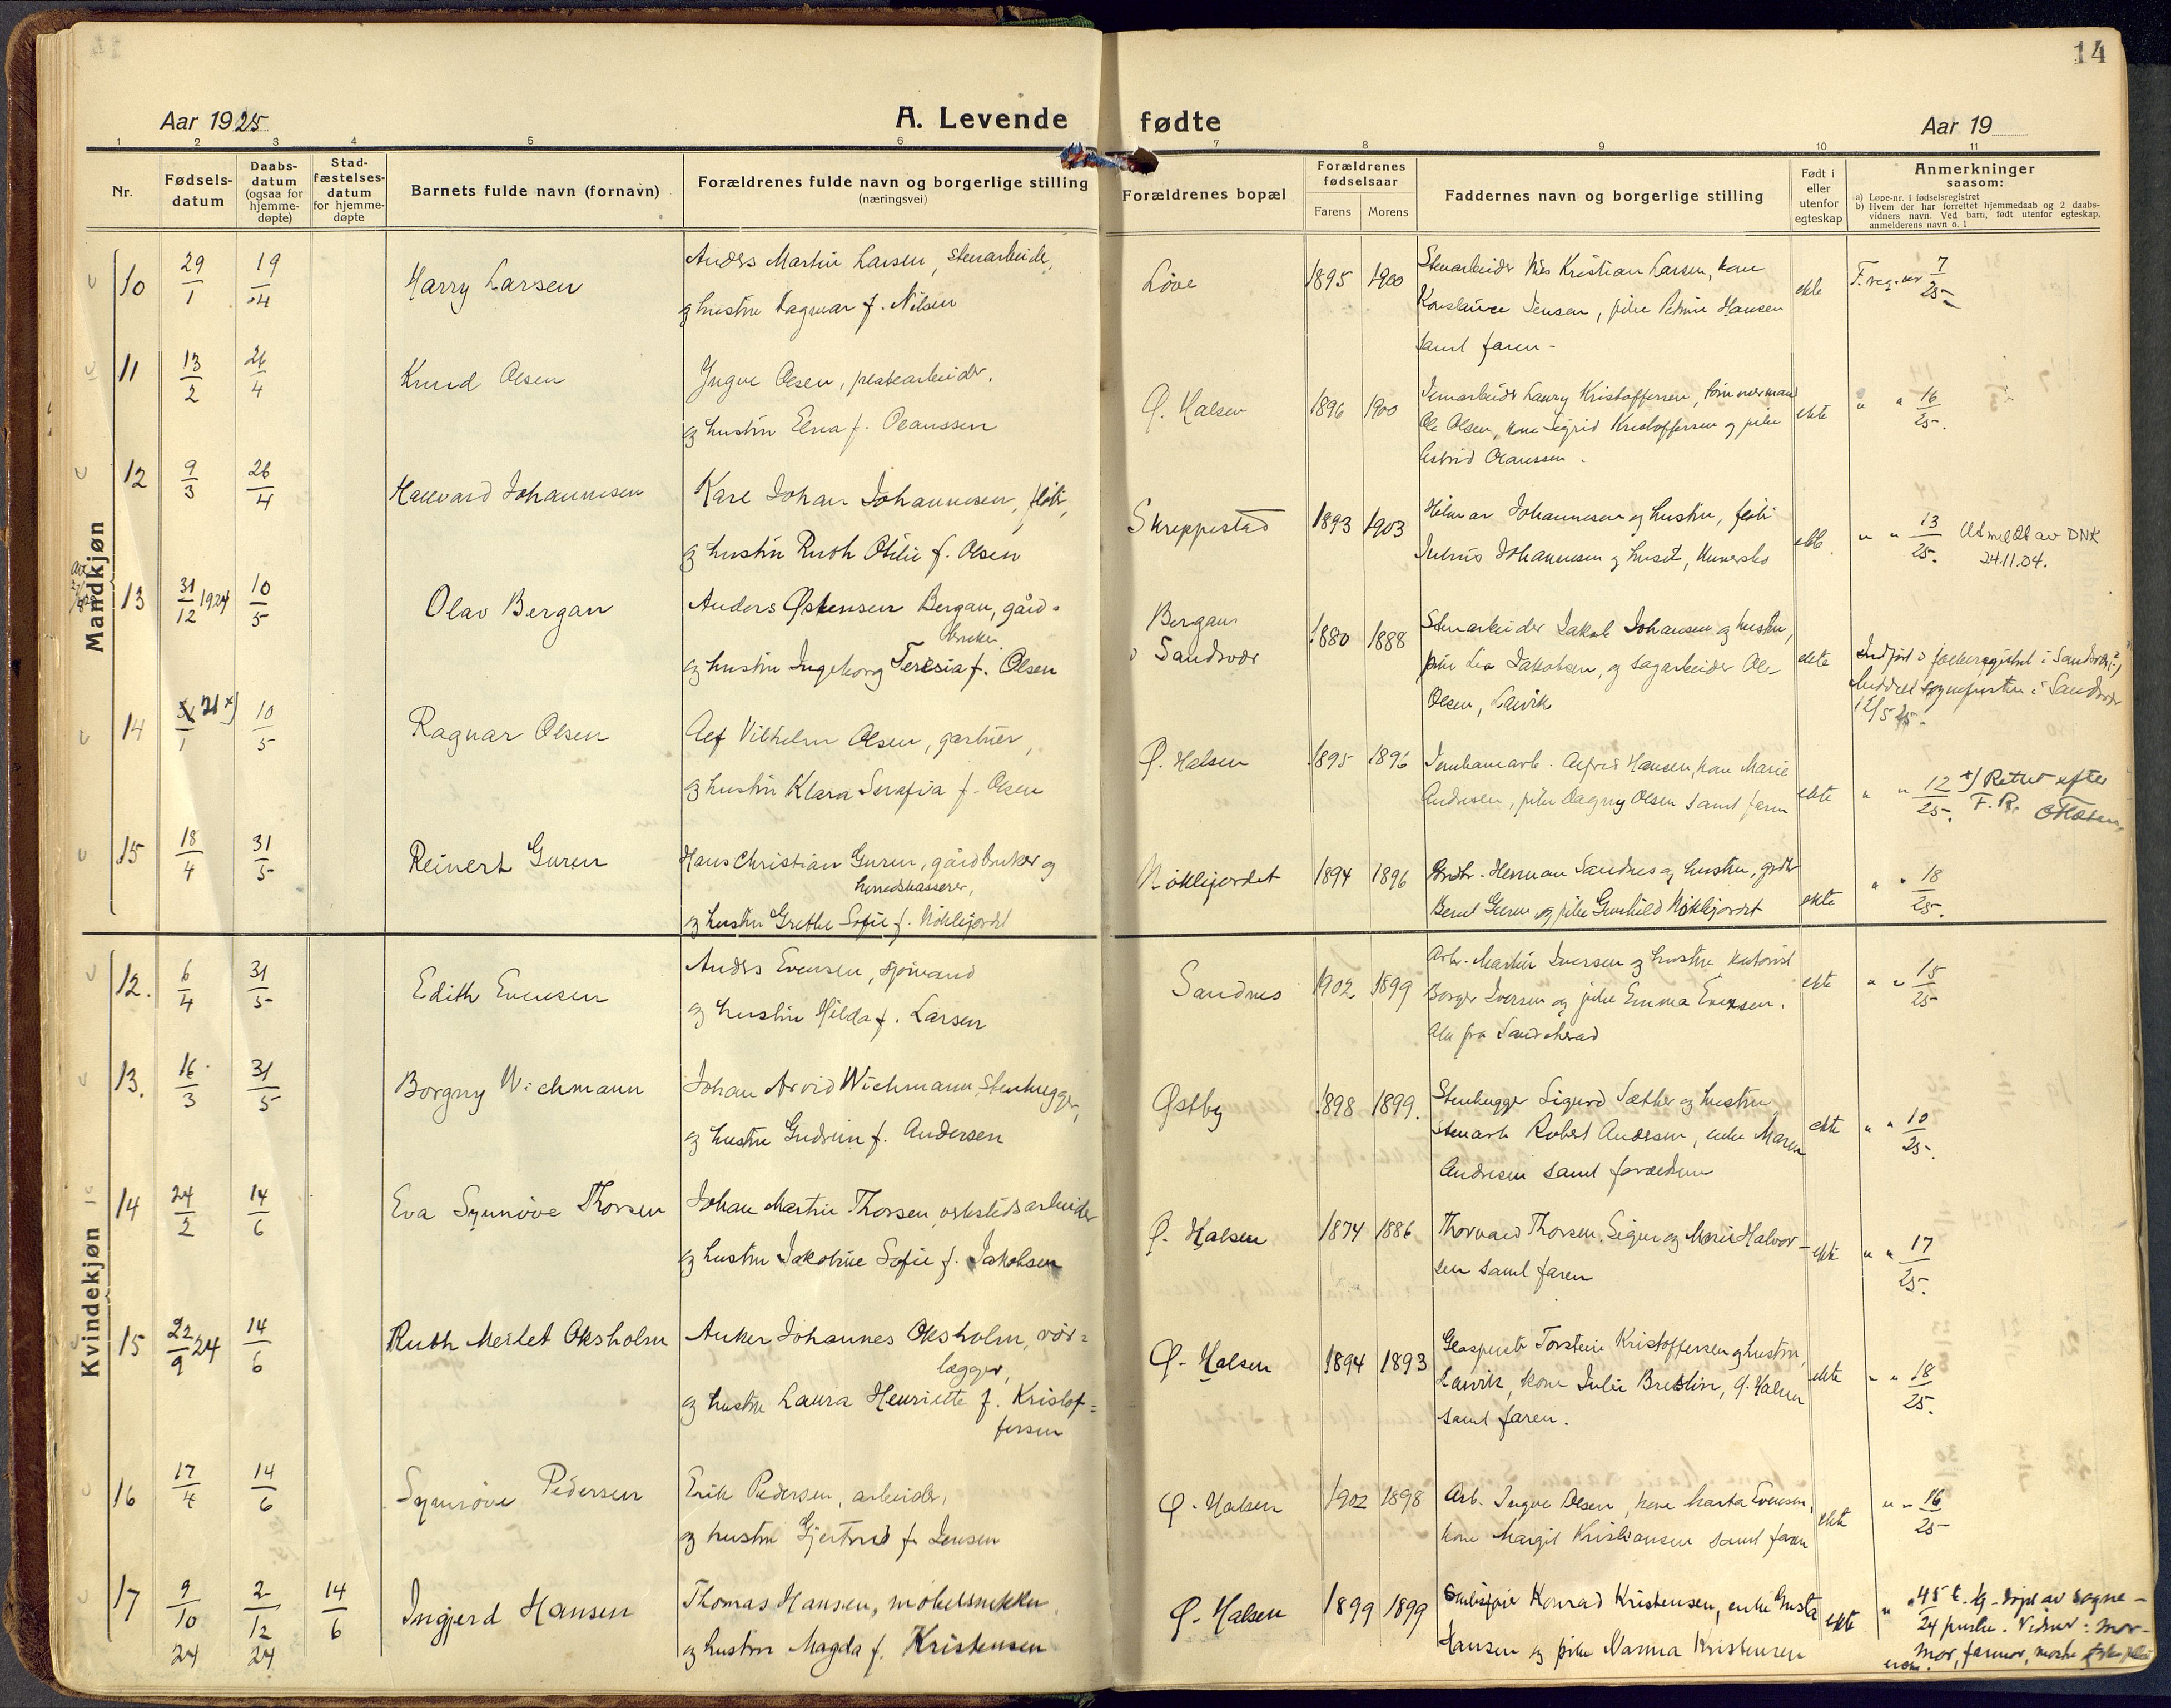 14
Aar 1925
A. Levende fødte
Aar 19
1 2 3 4 5 6 7 8 9 10 11
Nr.
Fødsels-
datum
Daabs-
datum
(ogsaa for
hjemme-
døpte)
Stad-
fæstelses-
datum
for hjemme-
døpte
Barnets fulde navn (fornavn)
Forældrenes fulde navn og borgerlige stilling
(næringsvei)
Forældrenes bopæl
Forældrenes
fødselsaar
Farens Morens
Faddernes navn og borgerlige stilling
Født i
eller
utenfor
egteskap
Anmerkninger
saasom:
a) Løpe-nr. i fødselsregistret
b) Hvem der har forrettet hjemmedaab og 2 daabs-
vidners navn. Ved barn, født utenfor egteskap,
anmelderens navn o. l
Mandkjøn
10 29/1 19/4 Harry Larsen
Anders Martin Larsen, stenarbeider,
og hustru Dagmar f. Nilsen
Løve 1895 1900
Stenarbeider Nils Kristian Larsen, kone
Konstance Jensen, pike Petrin Hansen
samt faren -
ekte F. reg. nr 7/25-
11 13/2 26/4 Knud Olsen
Yngve Olsen, platearbeider,
og hustru Elna f. Olaussen
Ø. Halsen 1896 1900
Jernarbeider Laury Kristoffersen, tømmermand
Ole Olsen, kone Sigrid Kristoffersen og pike
Astrid Olaussen.
ekte " " 16/25-.
12 9/3 26/4 Hallvard Johannesen
Karl Johan Johannesen,
og hustru Ruth Otilie f. Olsen
Skreppestad 1893 1903
Hilmar Johannesen og hustru,
Julius Johannesen og
ekte. " " 13/25. Utmeldt av DNK
24.11.04.
13 31/12 1924 10/5 Olav Bergan
Anders Østensen Bergan, gård-
bruker
og hustru Ingeborg Teresia f. Olsen
Bergan
i Sandsvær 1880 1888
Stenarbeider Jakob Johansen og hustru,
pike Lea Jakobsen, og sagarbeider Ole
Olsen, Larvik
ekte Indført i fødselsregistret i Sandsvær
Meddelt sogneprsten i Sandsvær
12/5 25-
14 21 x)/1 10/5 Ragnar Olsen
Alf Vilhelm Olsen, gartner,
og hustru Klara Serafia f. Olsen
Ø. Halsen 1895 1896
Alfred Hansen, kone Marie
Andresen, pike Dagny Olsen samt faren
ekte " " 12/25-. x) Rettet efter
F. R.
15 18/4 31/5 Reinert Guren
Hans Christian Guren, gårdbruker og
herredskasserer,
og hustru Grethe Sofie f. Nøklegjordet
Nøklegjordet 1894 1896
Herman Sandnes og hustru, grdbr
Bernt Guren og pike Gunhild Nøklegjordet
ekte " " 18/25.
Kvindekjøn
12. 6/4 31/5 Edith Evensen
Anders Evensen, sjømand
og hustru Hilda f. Larsen
Sandnes 1902 1899
Arb. Martin Iversen og hustru
Borger Iversen og pike Emma Evensen.
Alle fra Sandeherad
ekte " " 15/25-
13. 16/3 31/5 Borgny Wichmann
Johan Arvid Wichmann, Stenhugger,
og hustru Gudrun f. Andersen
Østby 1898 1899.
Stenhugger Sigurd Sæther og hustru
stenarb Robert Andersen, enke Maren
Andresen samt forældrene
ekte " " 10/25-.
14 24/2 14/6 Eva Synnøve Thorsen
Johan Martin Thorsen, verkstedsarbeider
og hustru Jakobine Sofie f. Jakobsen
Ø. Halsen 1874 1886
Thorvald Thorsen, Signe og Marie Halvor-
sen samt faren
ekte " " 17/25-.
15 22/9 24 14/6 Ruth Merlet Oksholm
Anker Johannes Oksholm, rør=
lægger,
og hustru Laura Henriette f. Kristof=
fersen
Ø. Halsen 1894 1893
Torstein Kristoffersen og hustru,
Larvik, kone Julie Breslin, Ø. Halsen
samt faren.
ekte " " 18/25.
16 17/4 14/6 Synnøve Pedersen
Erik Pedersen, arbeider,
og hustru Gjertrud f. Jensen
Ø. Halsen 1902 1898
Arb. Yngve Olsen, kone Marta Evensen,
kone Margit Kristiansen samt faren
ekte " " 16/25-
17 9/10 24 2/12 24 14/6 Ingjerd Hansen
Thomas Hansen, møbelsnekker,
og hustru Magda f. Kristensen
Ø. Halsen 1899 1899
Konrad Kristensen, enke Gusta
Hansen og pike Nanna Kristensen
ekte " " 45/24 døpt av sogne-
presten. Vidner: mor-
mor, farmor,